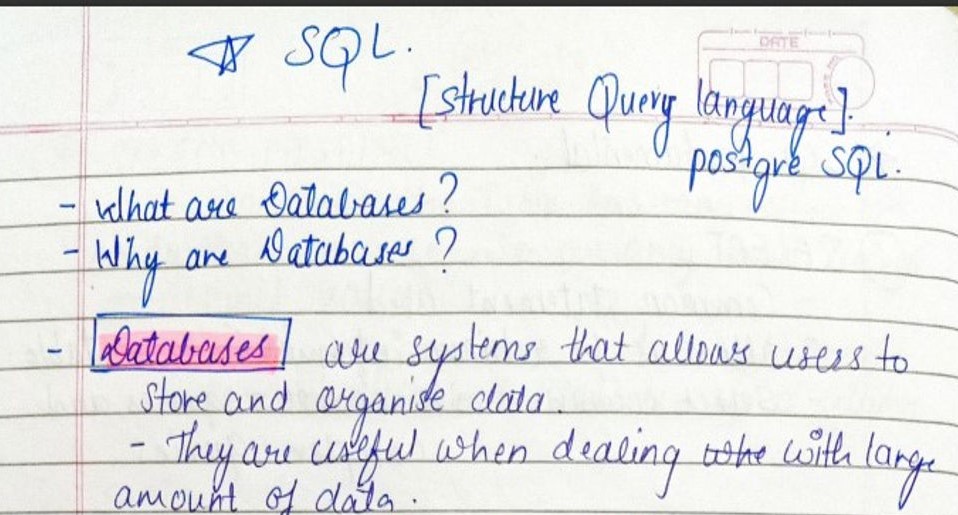 ☆ SQL.
DATE
[structure Query language].
postgre SQL.
- What are Databases?
- Why are Databases?
- Databases are systems that allows users to
store and organise data.
- They are useful when dealing whe with large
amount of data.